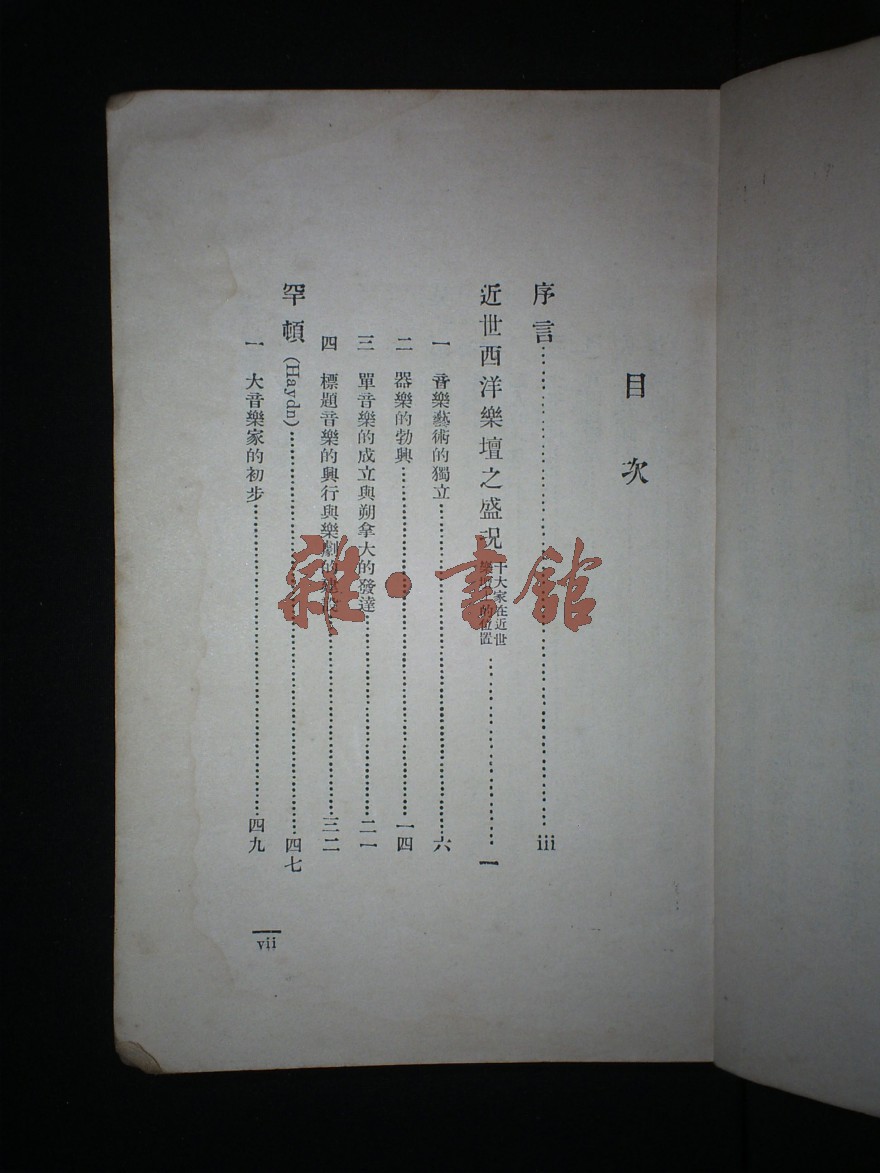 目次
序言……iii
近世西洋樂壇之盛況 十大家在近世樂壇上的位置……一
一 音樂藝術的獨立……六
二 器樂的勃興……一四
三 單音樂的成立與朔拿大的發達……二一
四 標題音樂的興行與樂劇的建設……三二
罕頓(Haydn)……四七
一 大音樂家的初步……四九
vii
雜·書館